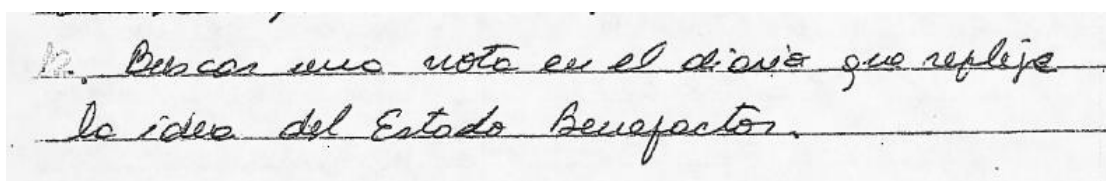 12. Buscar una nota en el diario que refleje
la idea del Estado Benefactor.